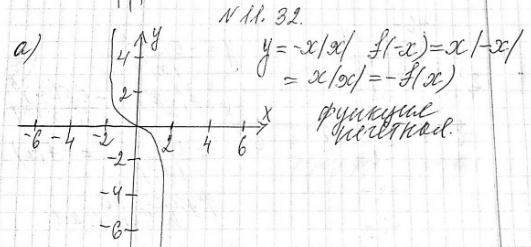 N 11. 32.
а)
y = -x|x| f(-x) = x|-x|
= x|x| = -f(x)
функция
нечётная.
y
4
2
x
-6 -4 -2 2 4 6
-2
-4
-6